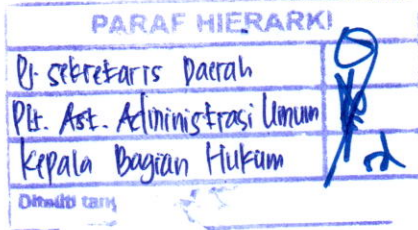 PARAF HIERARKI
Pj. sekretaris Daerah
Plt. Ast. Administrasi Umum
Kepala Bagian Hukum